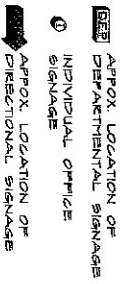 DEP APPOX. LOCATION OF
DEPARTMENTAL SIGNAGE
INDIVIDUAL OFFICE
SIGNAGE
APPOX. LOCATION OF
DIRECTIONAL SIGNAGE